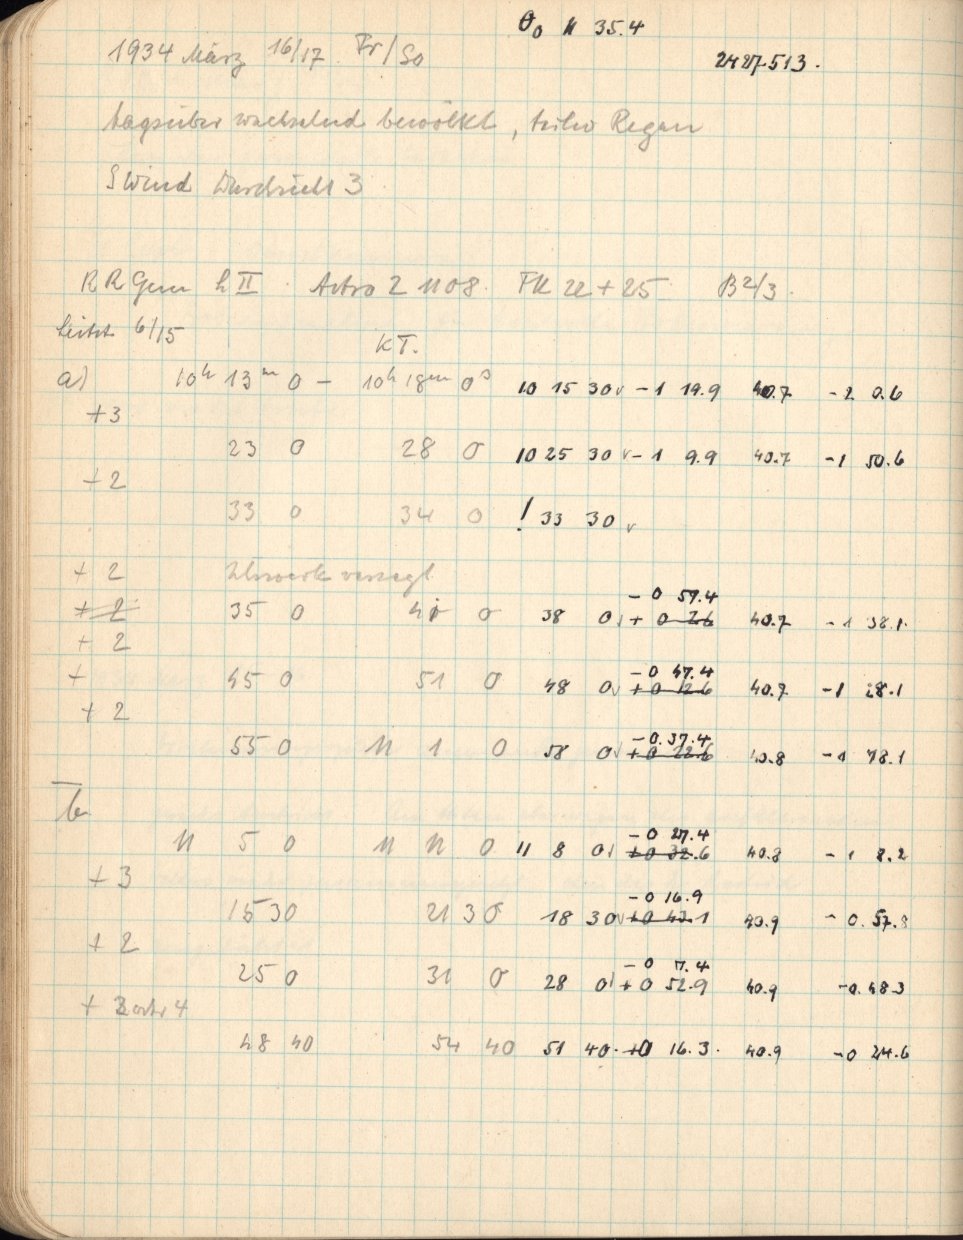 θ₀ 11 35.4
1934 März 16/17 Fr/So
2427513.
tagsüber wechselnd bewölkt, Regen
S Wind Durchsicht 3
RR Gem h II Astro Z 1108. FK 22 + 25 B 2/3.
6/15
KT.
a) 10h 13m 0 – 10h 18m 0s 10 15 30 v – 1 19.9 40.7 – 2 0.6
+3
23 0 28 0 10 25 30 v – 1 9.9 40.7 – 1 50.6
+2
33 0 34 0 ! 33 30 v
+ 2 Uhrwerk versagt
– 0 57.4
+ 2 35 0 41 0 38 0 v + 0 2.6 40.7 – 1 38.1
+ 2
– 0 47.4
+ 45 0 51 0 48 0 v + 0 12.6 40.7 – 1 28.1
+ 2
– 0. 37.4
55 0 11 1 0 58 0 v + 0 22.6 40.8 – 1 18.1
b
– 0 27.4
11 5 0 11 11 0 11 8 0 v + 0 32.6 40.8 – 1 8.2
+ 3
– 0 16.9
15 30 21 30 18 30 v + 0 43.1 40.9 – 0. 57.8
+ 2
– 0 7.4
25 0 31 0 28 0 v + 0 52.9 40.9 – 0. 48.3
+ 4
48 40 54 40 51 40. + 0 16.3. 40.9 – 0 24.6